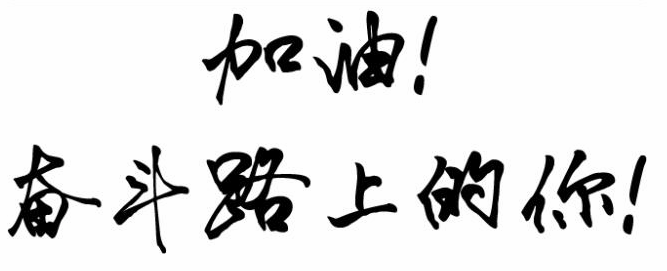 加油!
奋斗路上的你!